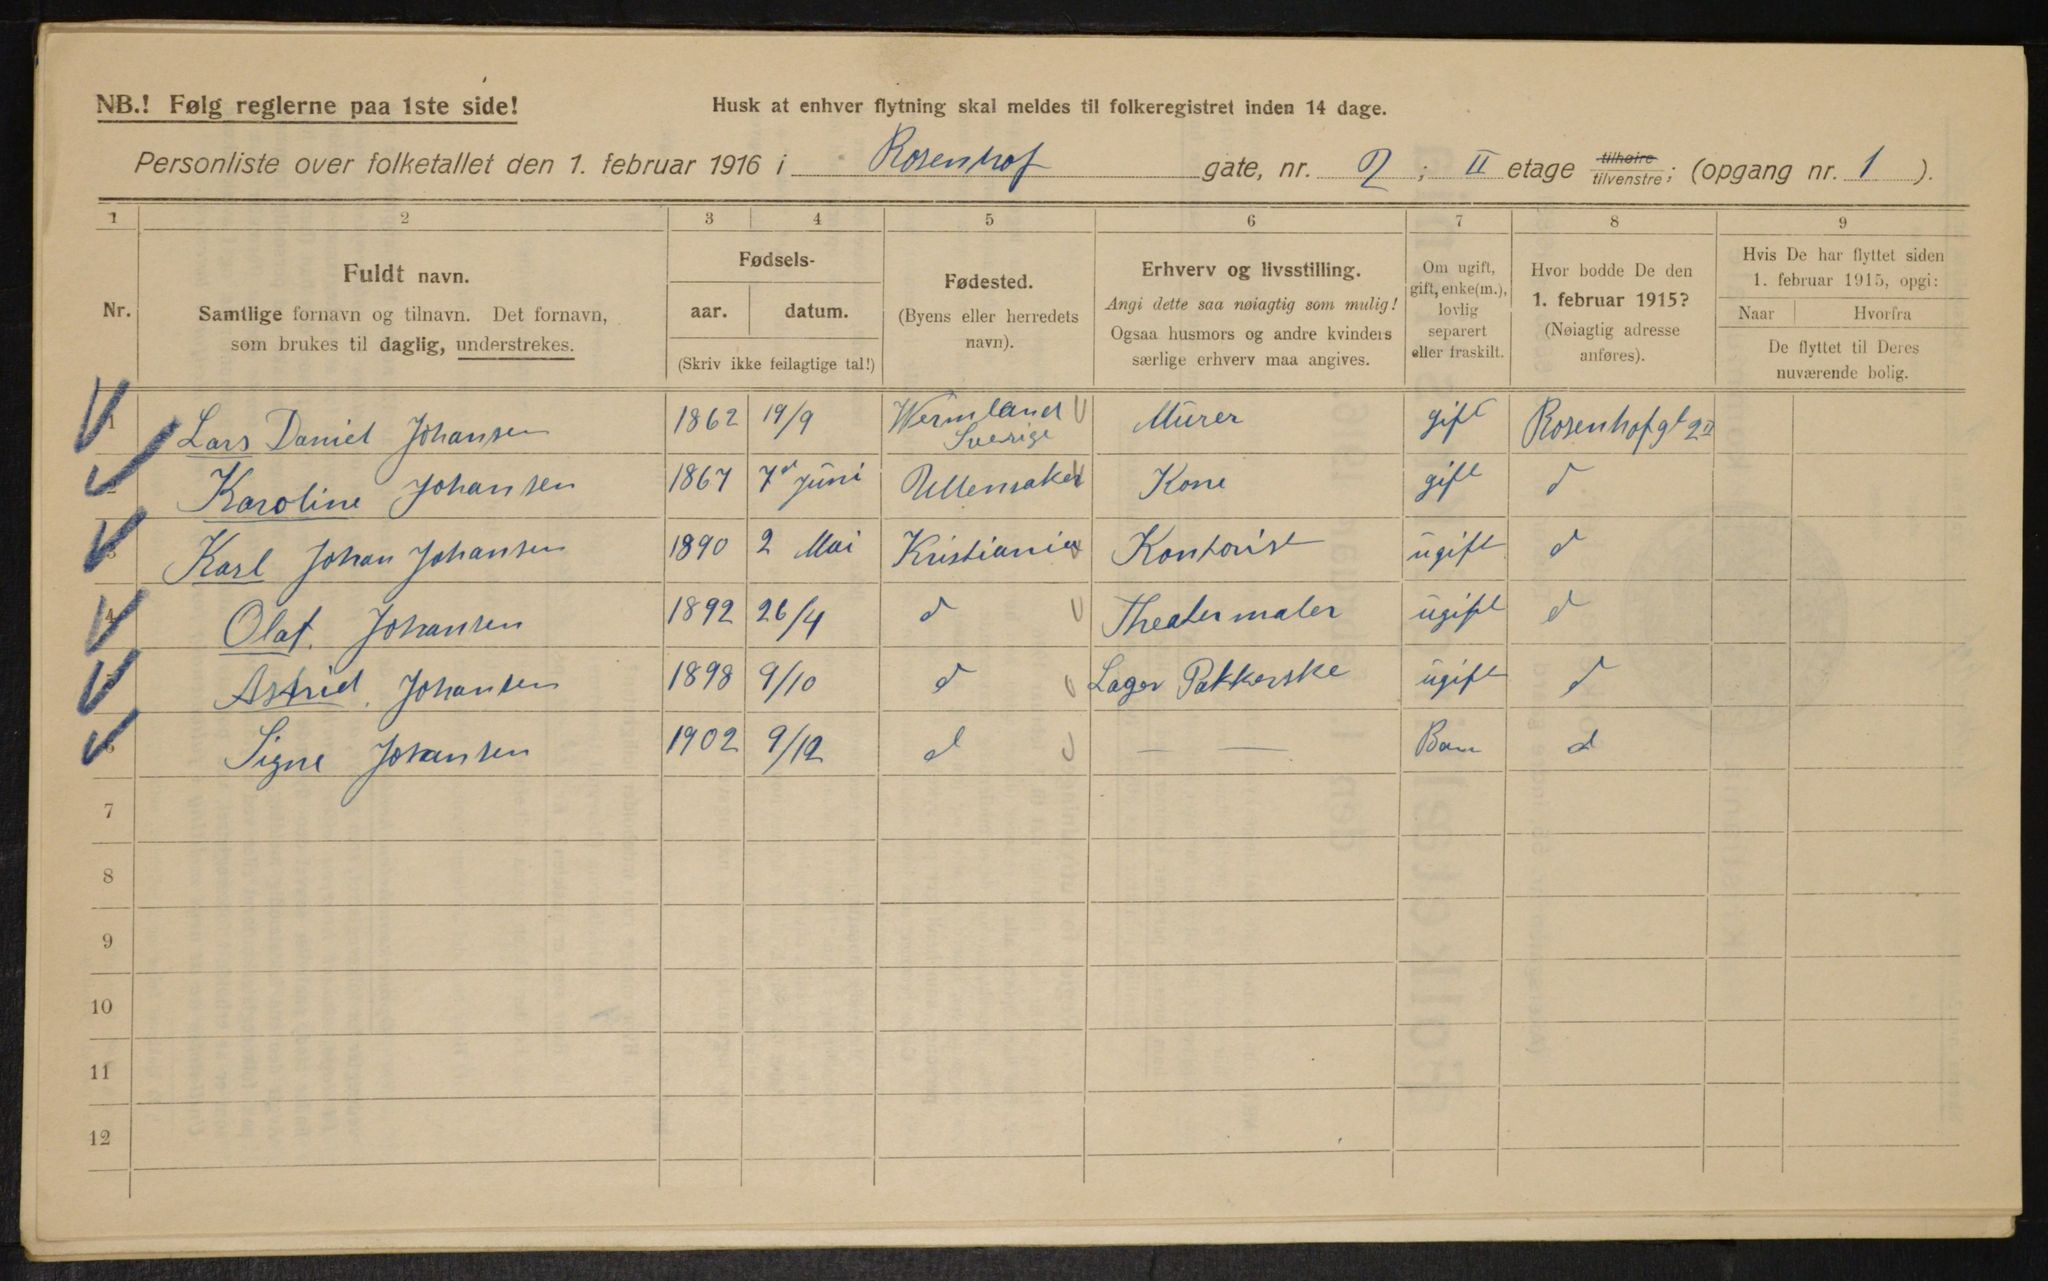 NB.! Følg reglerne paa 1ste side!
Husk at enhver flytning skal meldes til folkeregistret inden 14 dage.
Personliste over folketallet den 1. februar 1916 i Rosenhof gate, nr. 2 ; II etage tilhøire tilvenstre; (opgang nr. 1 ).
1 2 3 4 5 6 7 8 9
Nr.
Fuldt navn.
Samtlige fornavn og tilnavn. Det fornavn,
som brukes til daglig, understrekes.
Fødsels-
aar. datum.
(Skriv ikke feilagtige tal!)
Fødested.
(Byens eller herredets
navn).
Erhverv og livsstilling.
Angi dette saa nøiagtig som mulig!
Ogsaa husmors og andre kvinders
særlige erhverv maa angives.
Om ugift,
gift, enke(m.),
lovlig
separert
eller fraskilt.
Hvor bodde De den
1. februar 1915?
(Nøiagtig adresse
anføres).
Hvis De har flyttet siden
1. februar 1915, opgi:
Naar Hvorfra
De flyttet til Deres
nuværende bolig.
1 Lars Daniel Johansen 1862 19/9 Wermland Sverige Murer gift Rosenhofgt 2 II
2 Karoline Johansen 1867 7d juni Ullensaker Kone gift d
3 Karl Johan Johansen 1890 2 Mai Kristiania Kontorist ugift d
4 Olaf. Johansen 1892 26/4 d Theatermaler ugift d
5 Astrid. Johansen 1898 9/10 d Lager Pakkerske ugift d
6 Signe Johansen 1902 9/12 d — — Barn d
7
8
9
10
11
12